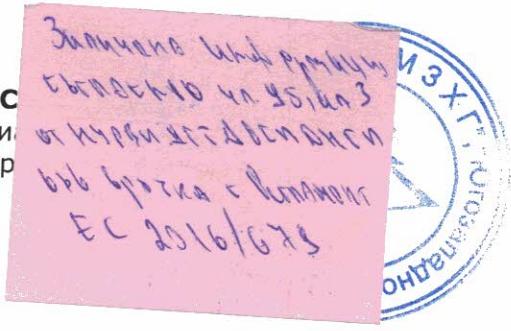 Заличена информация
съгласно чл 45, ал 3
от
във връзка с Регламент
ЕС 2016/679
С
р
МЗХГ, Югозападно